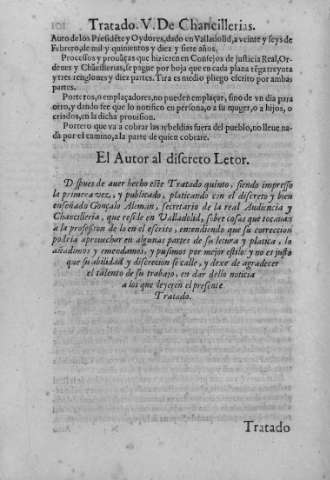 101
Tratado. V. De Chancillerias.
Auto de los Presidẽte y Oydores, dado en Valladolid, a veinte y seys de
Febrero, de mil y quinientos y diez y siete años.
Processos y prouãças que hizieren en Consejos de justicia Real, Or-
denes y Chãcillerias, se pague por hoja que en cada plana tẽga treynta
y tres renglones y diez partes. Tira es medio pliego escrito por ambas
partes.
Porteros, o emplaçadores, no pueden emplaçar, sino de vn dia para
otro, y dando fee que lo notifico en persona, o a su muger, o a hijos, o
criados, cõ la dicha prouision.
Portero que va a cobrar las rebeldias fuera del pueblo, no lleue na-
da por el camino, a la parte de quien cobrare.
El Autor al discreto Letor.
Dspues de auer hecho este Tratado quinto, siendo impresso
la primera vez, y publicado, platicando con el discreto y bien
enseñado Gonçalo Aleman, secretario de la real Audiencia y
Chancilleria, que reside en Valladolid, sobre cosas que tocauan
a la profession de lo en el escrito, entendiendo que su correccion
podria aprouechar en algunas partes de su letura y platica, lo
añadimos y emendamos, y pusimos por mejor estilo: y no es justo
que su abilidad y discrecion se calle, y dexe de agradecer
el talento de su trabajo, en dar dello noticia
a los que leyeren el presente
Tratado.
Tratado